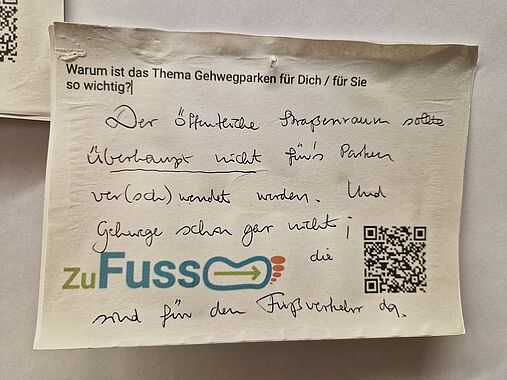 Warum ist das Thema Gehwegparken für Dich / für Sie
so wichtig?
Der öffentliche Straßenraum sollte
überhaupt nicht für's Parken
ver(sch)wendet werden. Und
Gehwege schon gar nicht;
die
ZuFuss
sind für den Fußverkehr da.